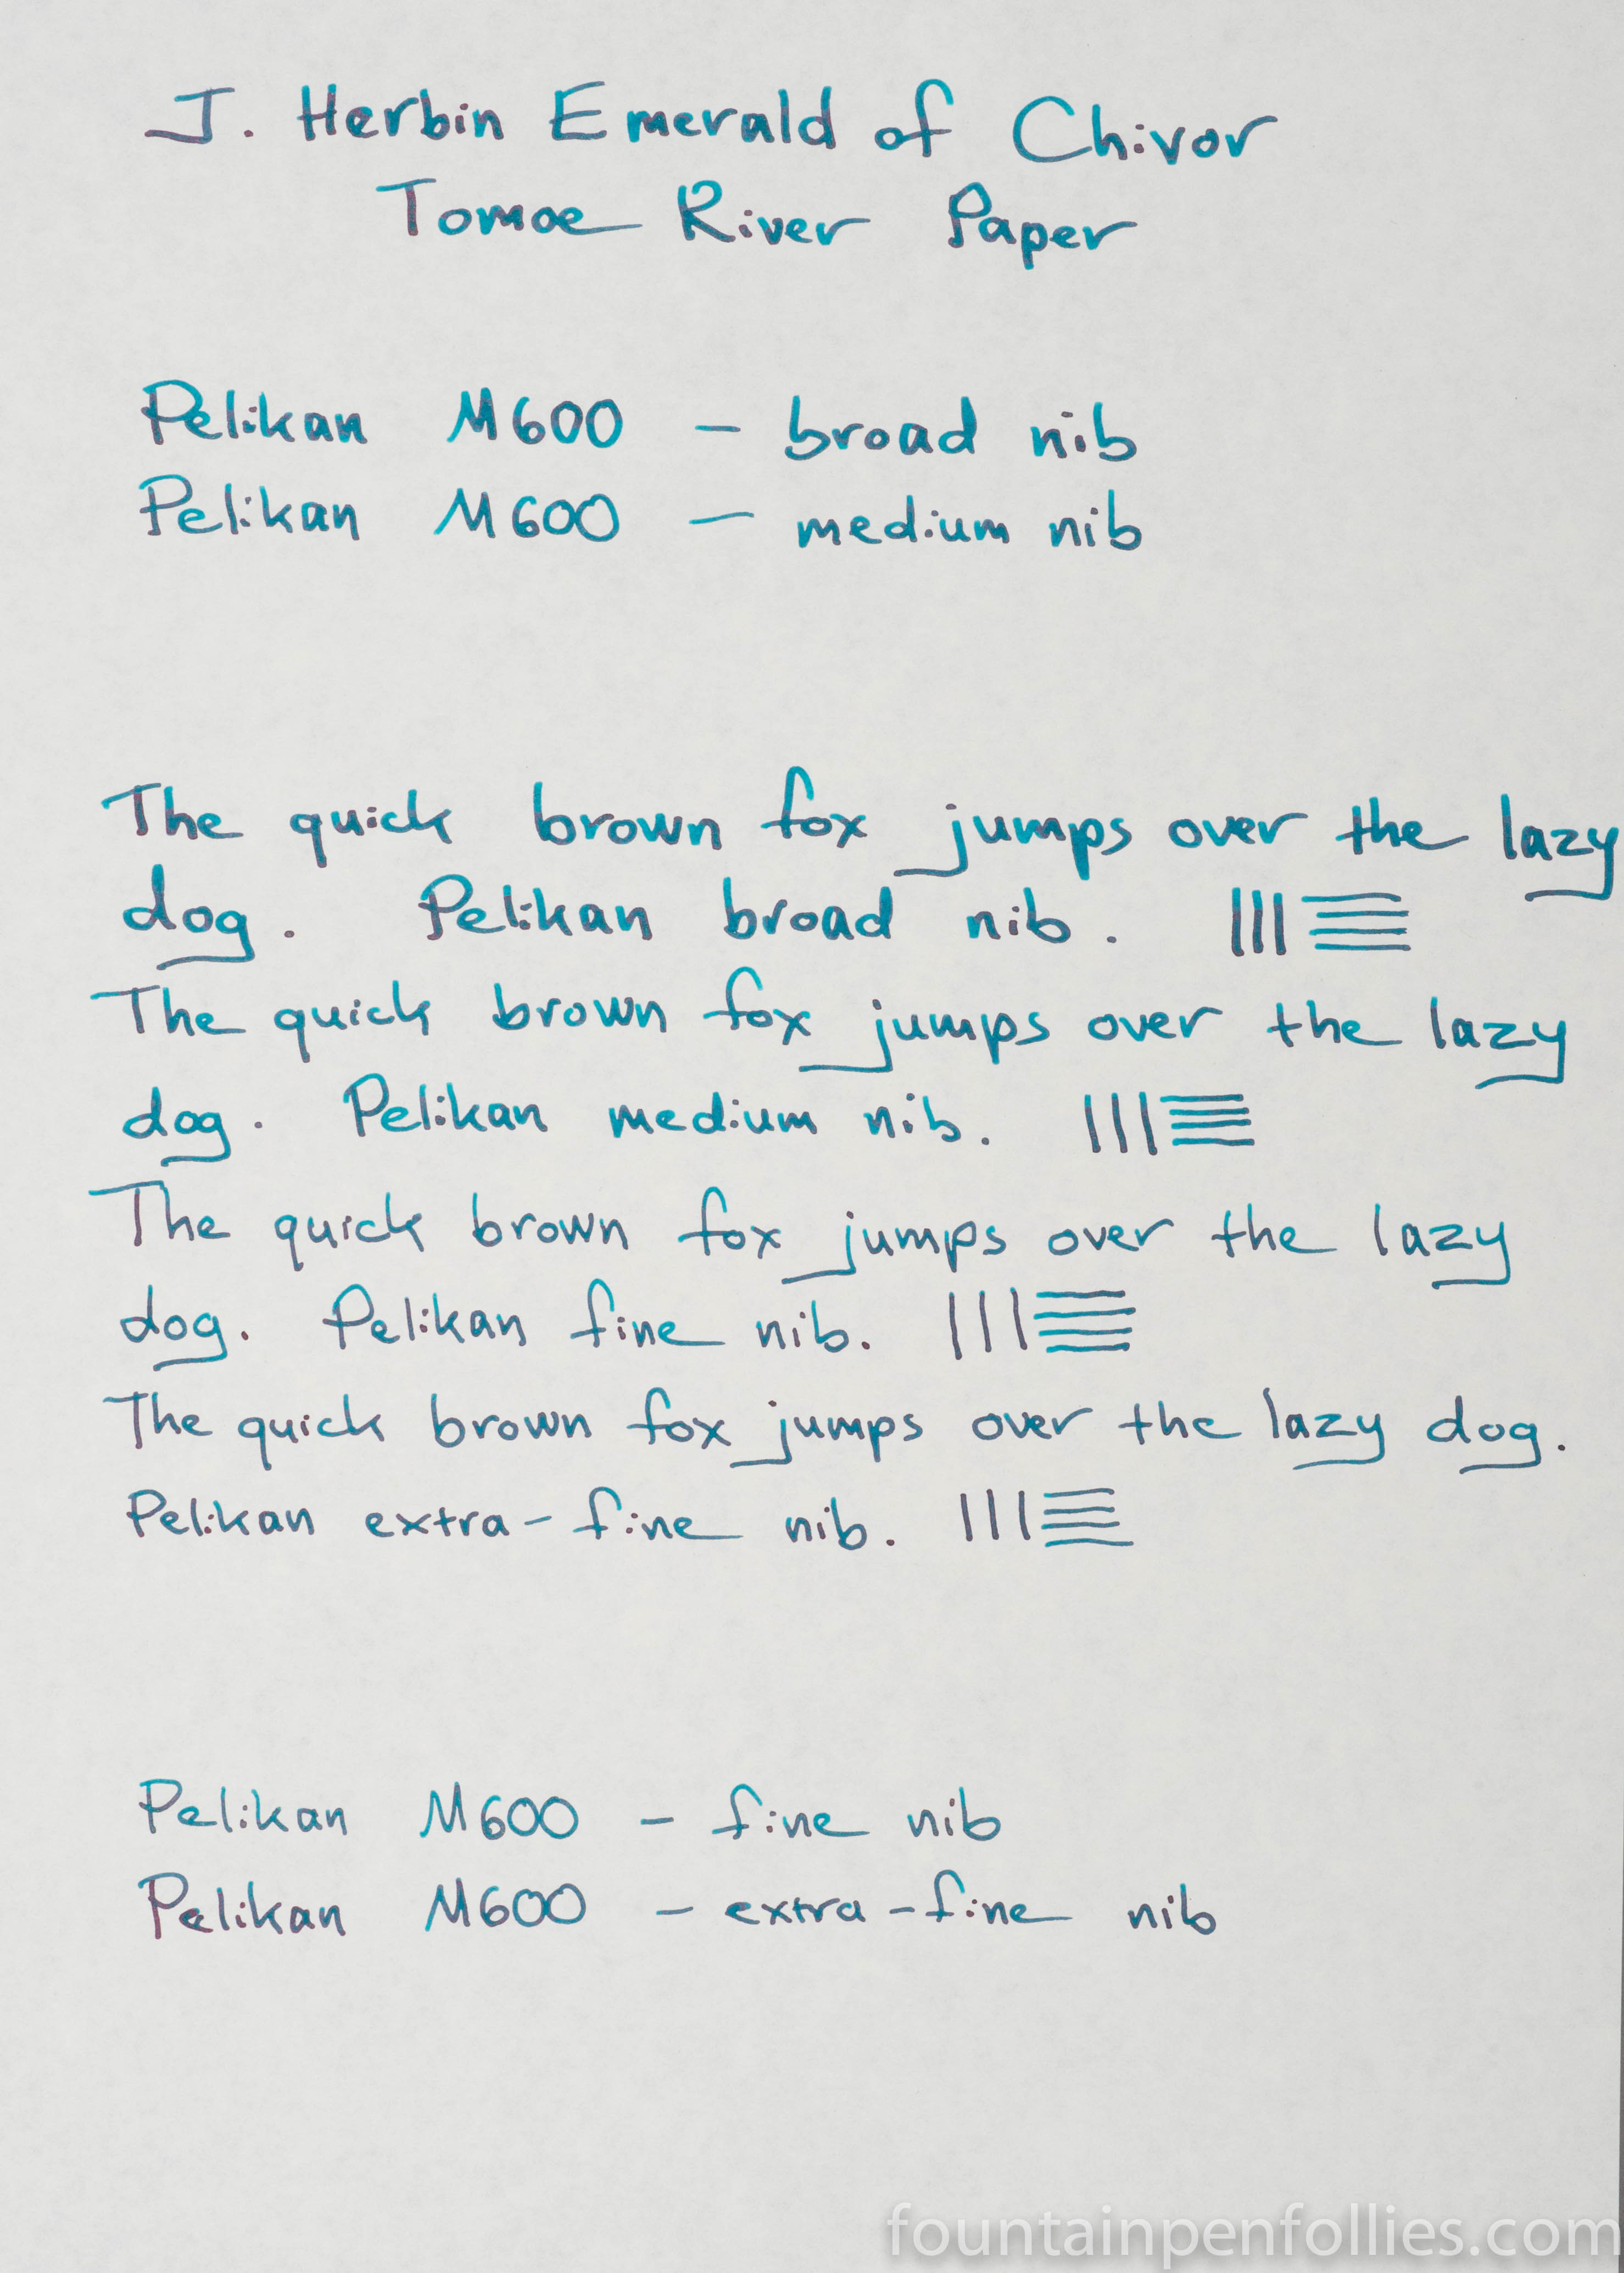 J. Herbin Emerald of Chivor
Tomoe River Paper
Pelikan M600 – broad nib
Pelikan M600 – medium nib
The quick brown fox jumps over the lazy
dog. Pelikan broad nib.
The quick brown fox jumps over the lazy
dog. Pelikan medium nib.
The quick brown fox jumps over the lazy
dog. Pelikan fine nib.
The quick brown fox jumps over the lazy dog.
Pelikan extra-fine nib.
Pelikan M600 – fine nib
Pelikan M600 – extra-fine nib
fountainpenfollies.com